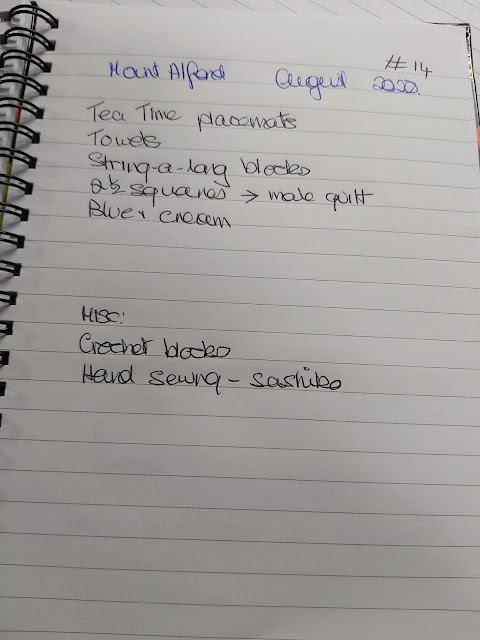 # 14
Mount Alford August 2020.
Tea Time placemats
Towels
String-a-long blocks
2½ squares → male quilt
Blue + cream
MISC:
Crochet blocks
Hand sewing - sashiko